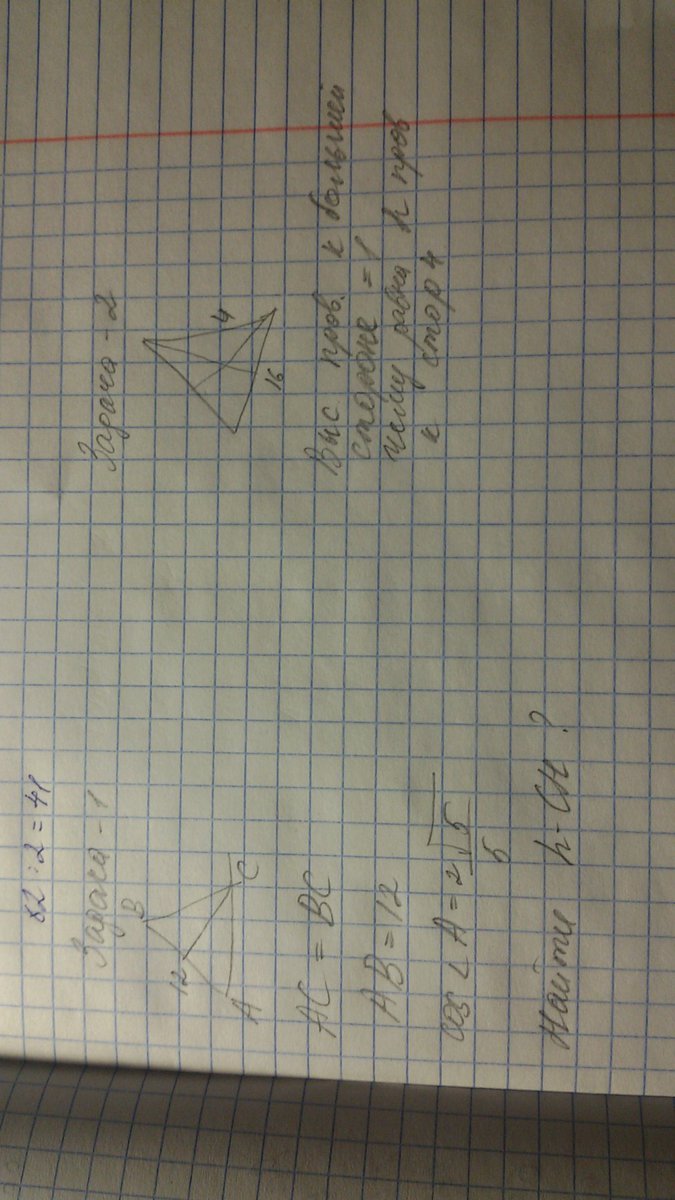 82 : 2 = 41
Задача - 1
B
12
A
C
AC = BC
AB = 12
cos ∠ A = 2√5
5
Найти h - CH ?
Задача - 2
4
16
Выс пров. к большей
стороне = 1
чему равна h пров
к стор 4